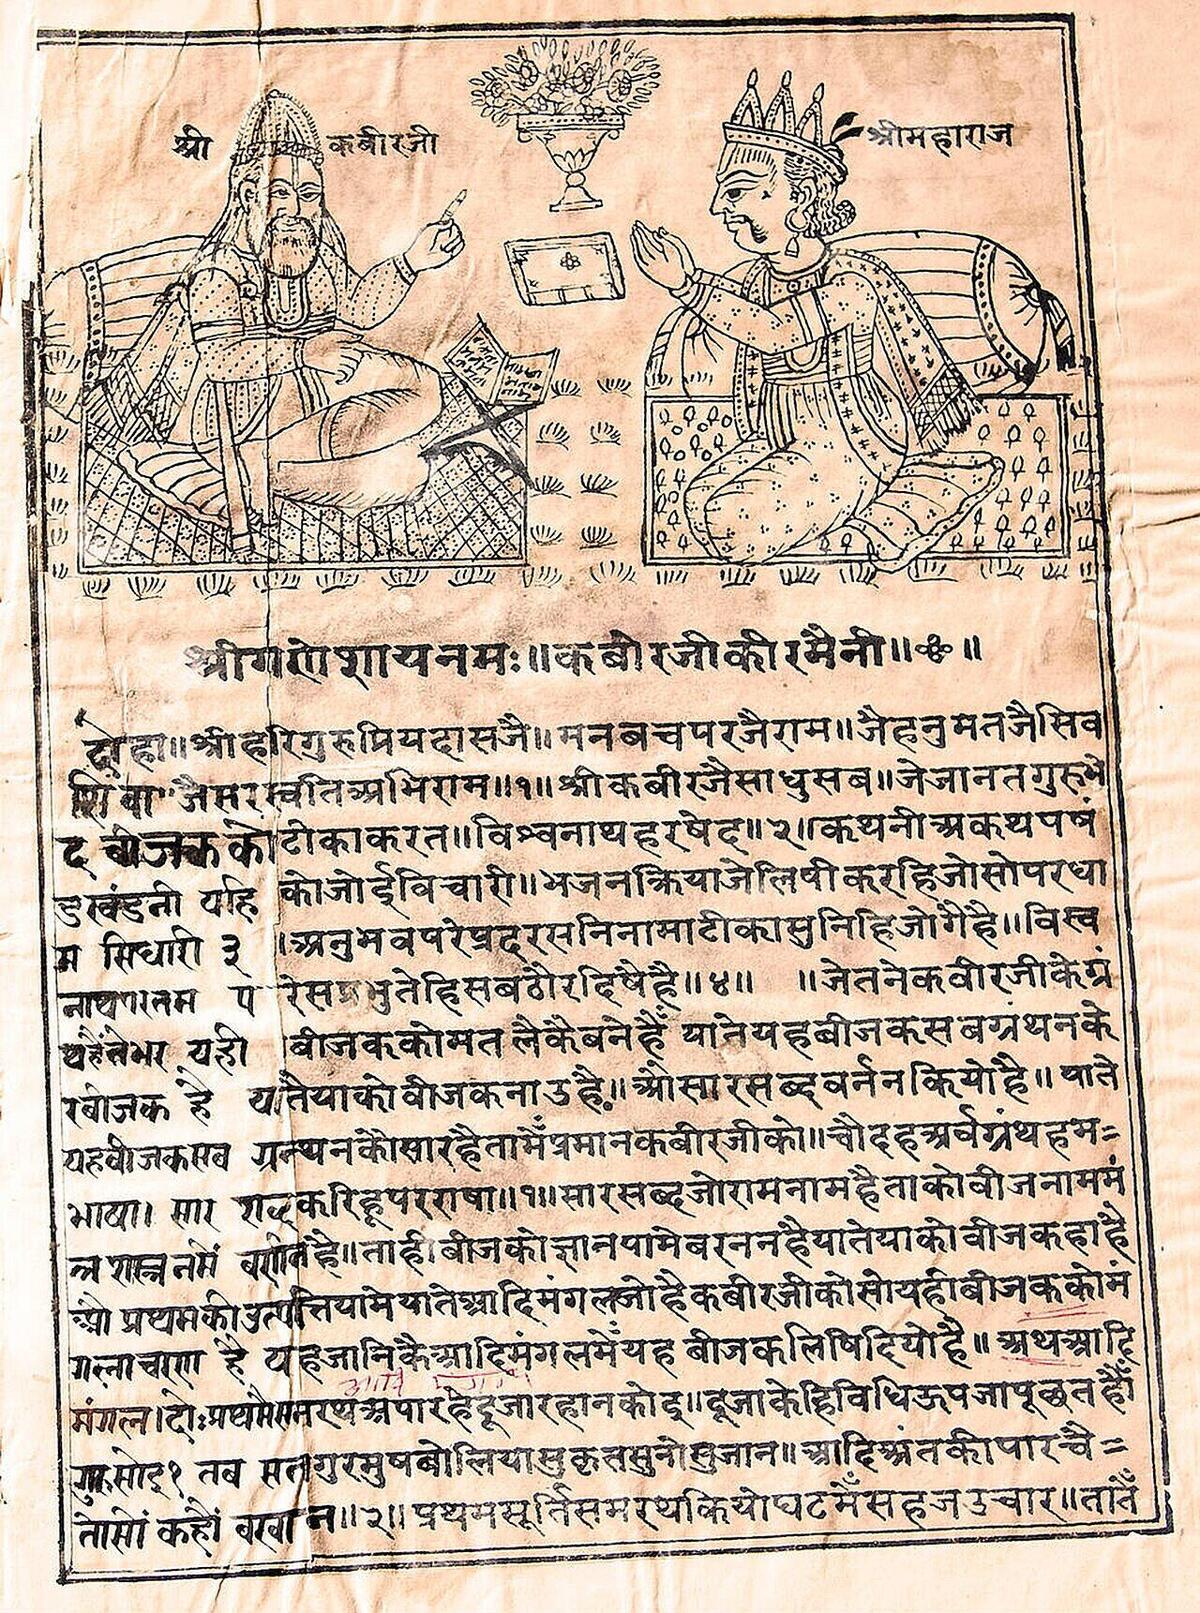 श्री कबीरजी
श्रीमहाराज
श्रीगणेशायनमः॥कबीरजीकीरमैनी॥॥
दोहा॥श्रीहरिगुरुप्रियदासजै॥मनबचपरजैराम॥जैहनुमतजैसिव
शिवा जैसरस्वतिअभिराम॥१॥श्रीकबीरजैसाधुसब॥जेजानतगुरुभे
द बीजककोटीकाकरत॥विश्वनाथहरषेद॥२॥कथनीअकथपषं
डखंडनी यहि कोजोईविचारी॥भजनक्रियाजेलिषीकरहिजोसोपरधा
म सिधारी ३ ।अनुभवपरेप्रदरसनिनामाटीकासुनिहिजोगैहै॥विस्व
रेसप्रभुतेहिसबठौरदिषैहै॥४॥ ॥जेतनेकबीरजीकेग्रं
बीजककोमतलैकैबनेहैं यातेयहबीजकसबग्रंथनके
रबीजक है यातैयाकोबीजकनाउहै॥औसारसब्दवर्ननकियोहै॥याते
यहबीजकसब ग्रन्थनकौसारहैतामेंप्रमानकबीरजीको॥चौदहअर्वग्रंथहम=
भाषा। सार शब्दकरिहूपरराषा॥१॥सारसब्दजोरामनामहैताकोबीजनाममं
त्र शास्त्रनमें वर्णितहै॥ताहीबीजकोज्ञानयामेबरननहैयातेयाकोबीजकहाहै
औ प्रथमकीउत्पत्तियामेयातेआदिमंगलजोहैकबीरजीकोसोयहीबीजककोमं
गलाचरण है यहजानिकैआदिमंगलमेंयहबीजकलिषिदियोहै॥अथआदि
मंगल।दो:प्रथमैसमरथअपारहैदूजारहानकोइ॥दूजाकेहिविधिऊपजापूछतहौं
गुरुसोइ१ तब सतगुरमुषबोलियासुकृतसुनोसुजान॥आदिअंतकीपारचै=
तोसों कहौं बखान॥२॥प्रथमसूर्तिसमरथकियोघटमेंसहजउचार॥तातें